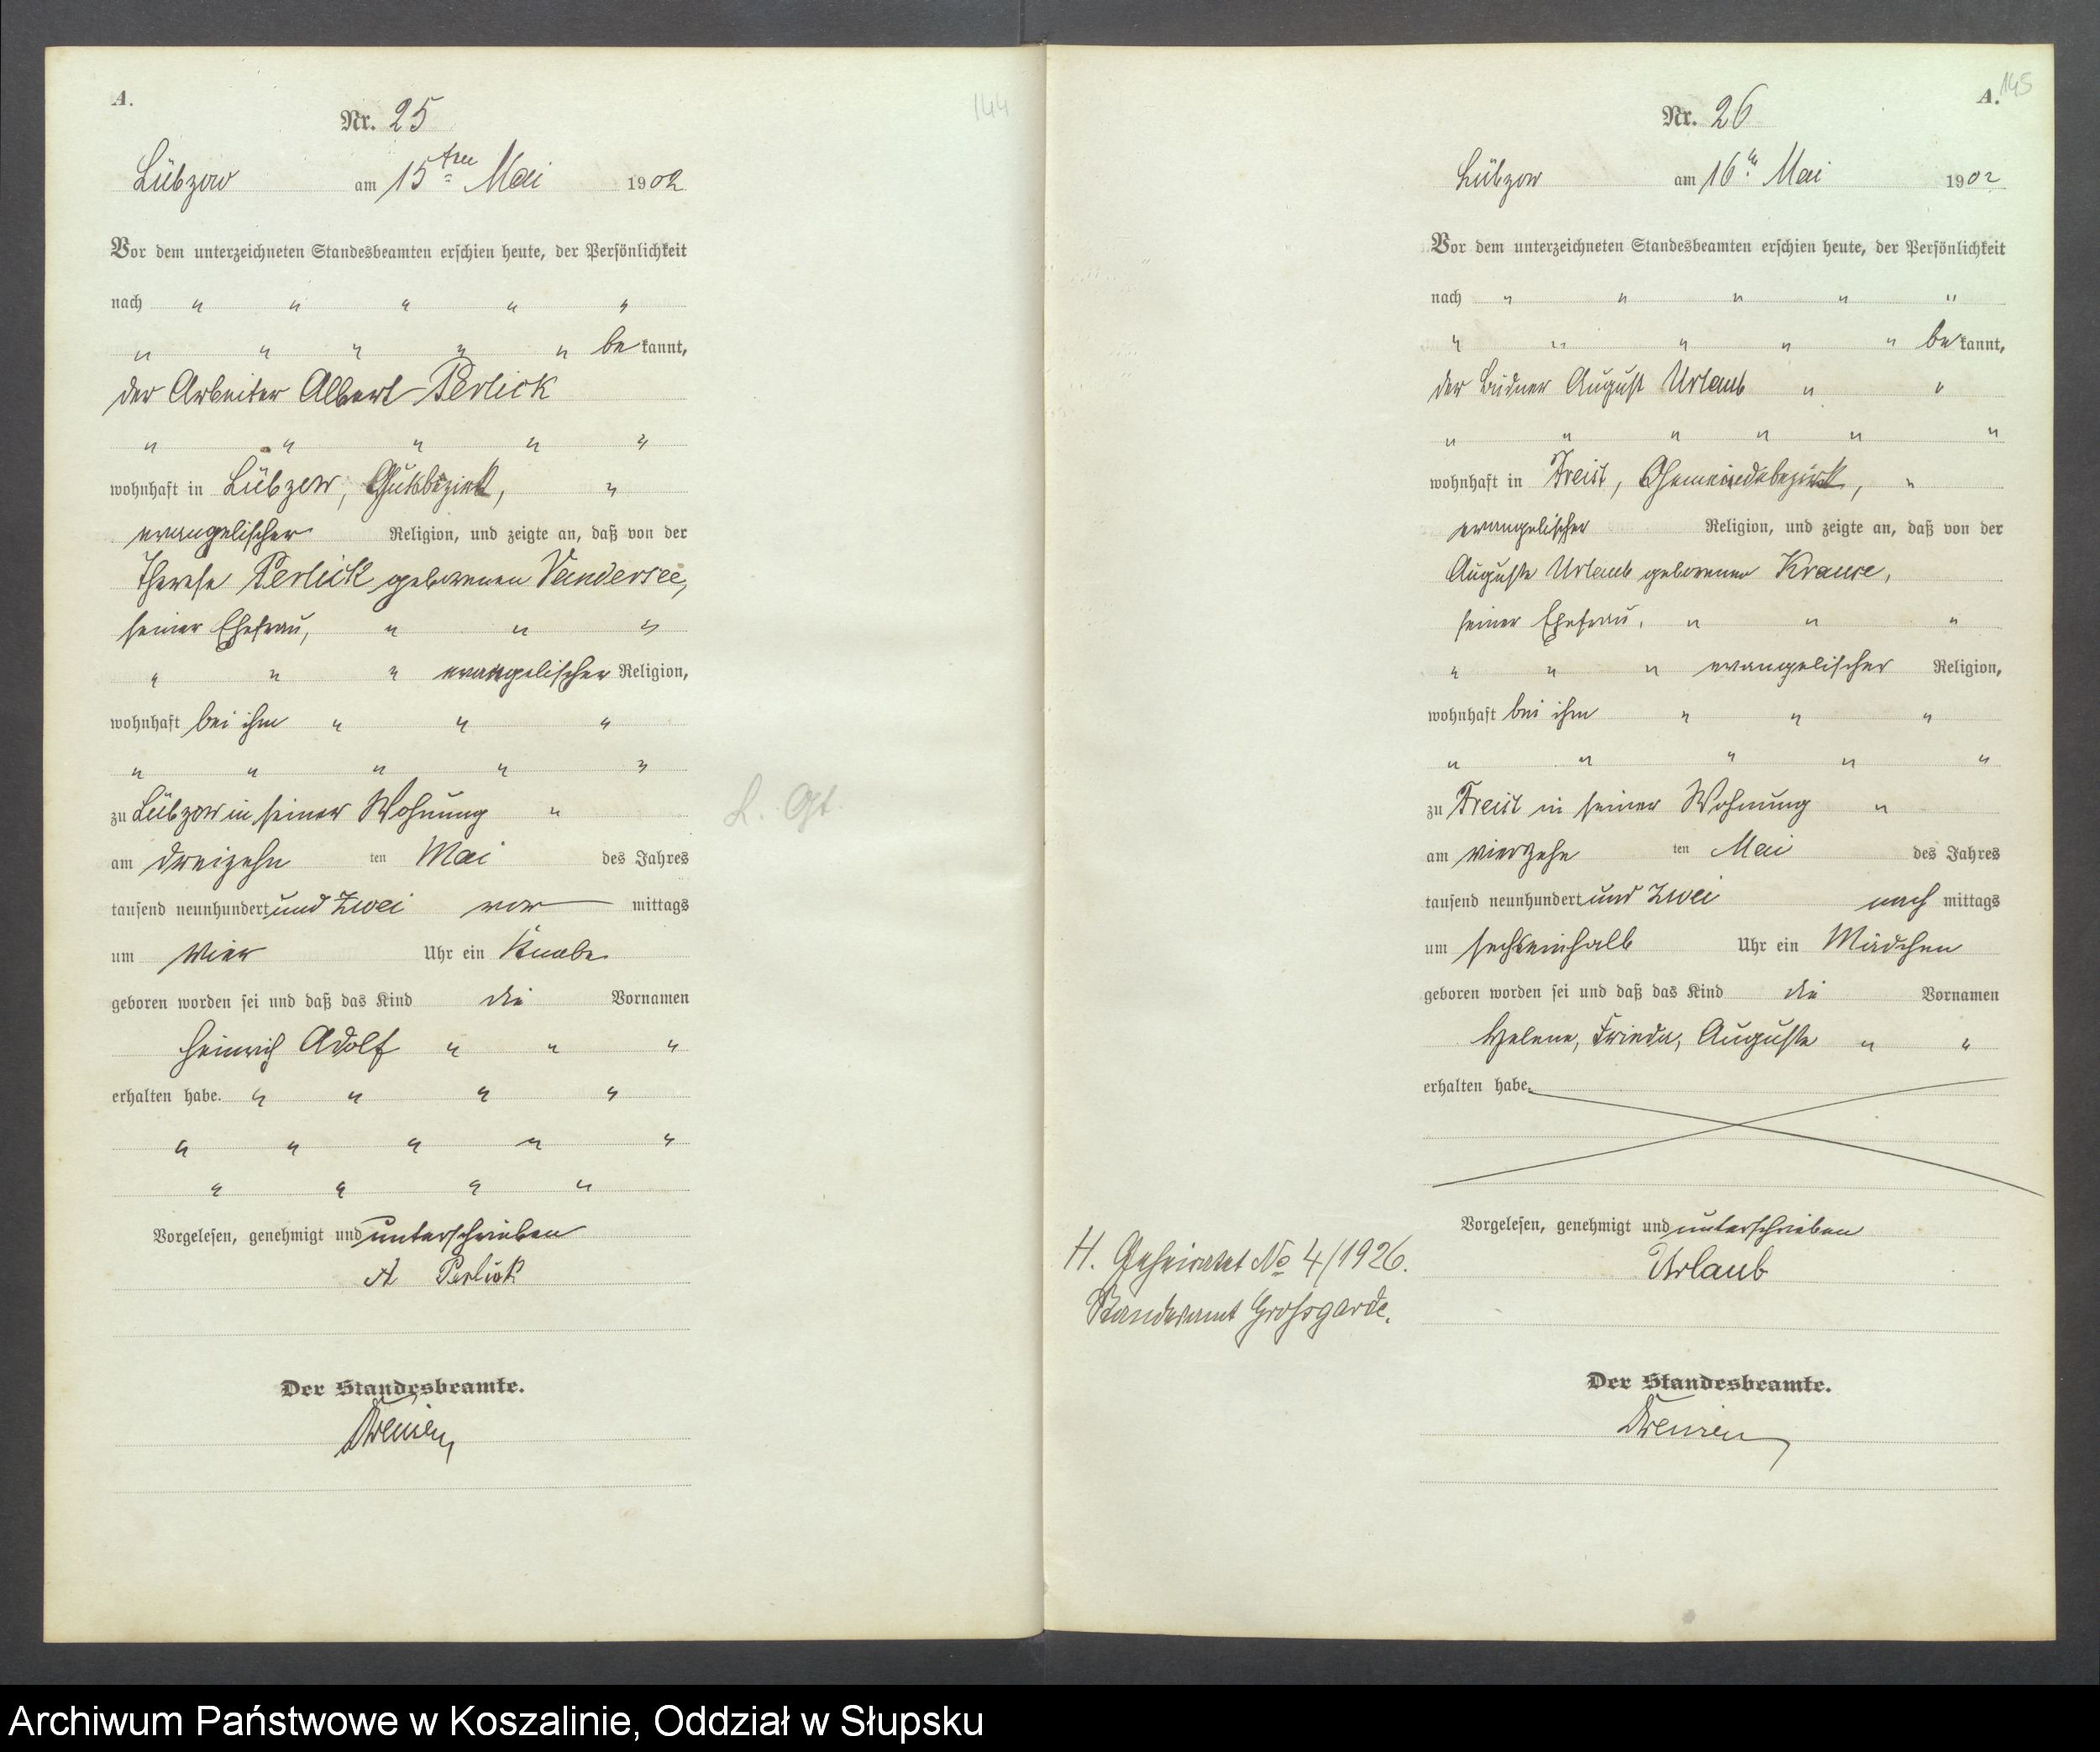 A.
144
Nr. 25
Lübzow am 15ten Mai 1902
Vor dem unterzeichneten Standesbeamten erschien heute, der Persönlichkeit
nach " " " " "
" " " " " be kannt,
der Arbeiter Albert Perlick
" " " " "
wohnhaft in Lübzow, Gutsbezirk, "
evangelischer Religion, und zeigte an, daß von der
Therese Perlick geborenen Vandersee,
seiner Ehefrau, " " "
" " " evangelischer Religion,
wohnhaft bei ihm " " "
" " " " "
zu Lübzow in seiner Wohnung "
am dreizehn ten Mai des Jahres
tausend neunhundert und zwei vor mittags
um vier Uhr ein Knabe
geboren worden sei und daß das Kind die Vornamen
Heinrich Adolf " " "
erhalten habe. " " " "
" " " " "
" " " "
Vorgelesen, genehmigt und unterschrieben
A Perlick
Der Standesbeamte.
L. Gt
A.
145
Nr. 26
Lübzow am 16ten Mai 1902
Vor dem unterzeichneten Standesbeamten erschien heute, der Persönlichkeit
nach " " " " "
" " " " " be kannt,
der Büdner August Urlaub " "
" " " " " "
wohnhaft in Freist, Gemeindebezirk, "
evangelischer Religion, und zeigte an, daß von der
Auguste Urlaub geborenen Krause,
seiner Ehefrau, " " "
" " " evangelischer Religion,
wohnhaft bei ihm " " "
" " " " "
zu Freist in seiner Wohnung "
am vierzehn ten Mai des Jahres
tausend neunhundert und zwei nach mittags
um sechseinhalb Uhr ein Mädchen
geboren worden sei und daß das Kind die Vornamen
Helene, Frieda, Auguste " "
erhalten habe.
Vorgelesen, genehmigt und unterschrieben
Urlaub
H. Geheiratet No 4/1926.
Standesamt Grossgarde.
Der Standesbeamte.
Archiwum Państwowe w Koszalinie, Oddział w Słupsku